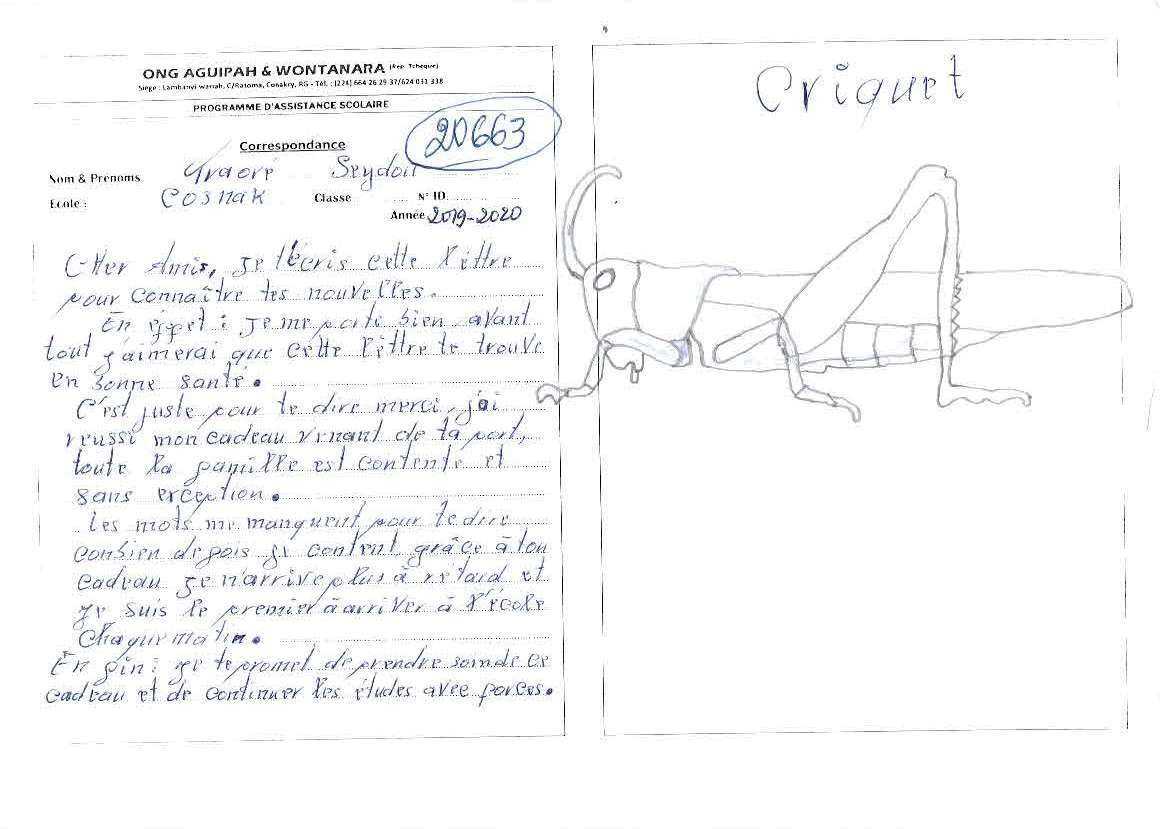 ONG AGUIPAH & WONTANARA (Rep. Tchèque)
Siège : Lambanyi wariah, C/Ratoma, Conakry, RG - Tél. : (224) 664 26 29 37/624 031 338
PROGRAMME D'ASSISTANCE SCOLAIRE
20663
Correspondance
Nom & Prénoms Traoré Seydou
Ecole : Cosnak Classe N° ID
Année 2019-2020
Cher Amis, je t'écris cette lettre
pour connaître tes nouvelles.
En effet : je me porte bien avant
tout j'aimerai que cette lettre te trouve
en bonne santé.
C'est juste pour te dire merci, j'ai
reussi mon cadeau venant de ta part,
toute la famille est contente et
sans exception.
Les mots me manquent pour te dire
combien de fois je content grâce à ton
cadeau je n'arrive plus à retard et
je suis le premier à arriver à l'école
chaque matin.
En fin : je te promet de prendre soin de ce
cadeau et de continuer les études avec forces.
Criquet